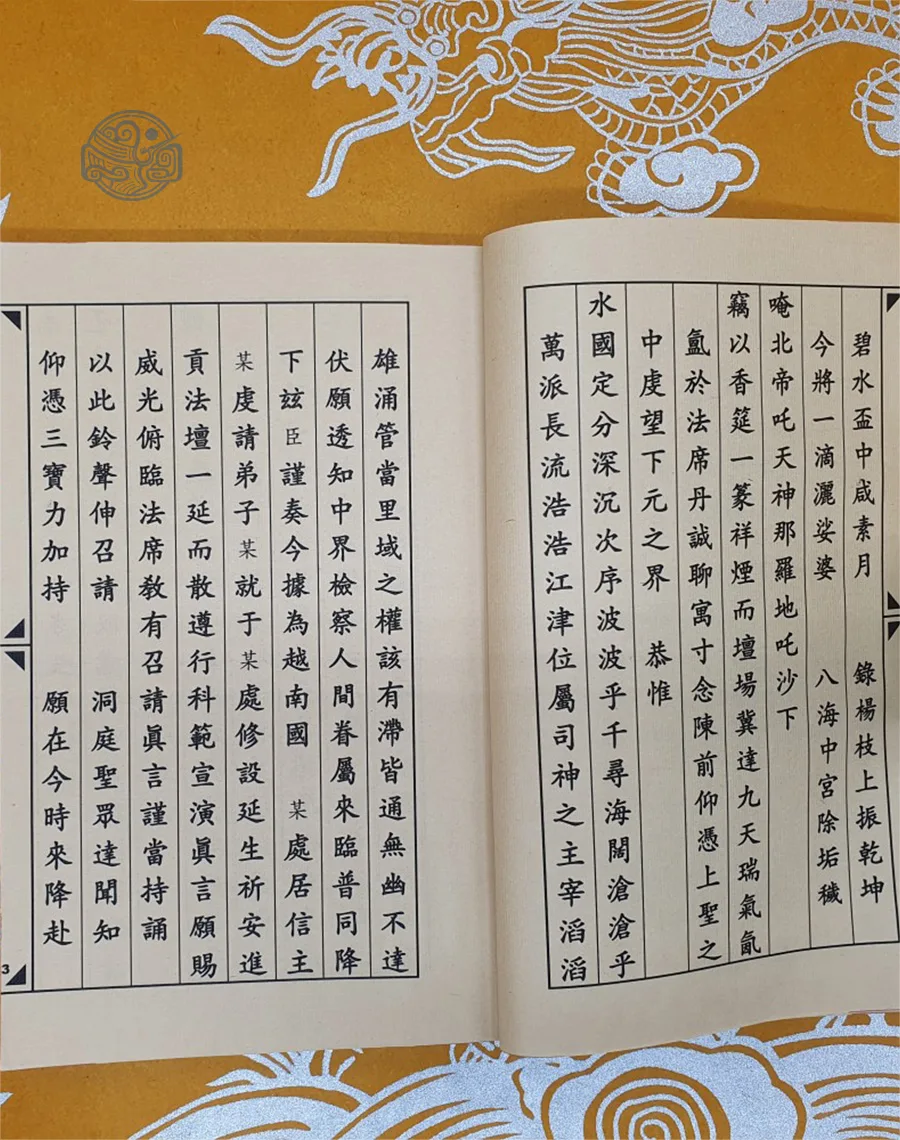 碧水盃中咸素月 錄楊枝上振乾坤
今將一滴灑娑婆 八海中宮除垢穢
唵北帝吒天神那羅地吒沙下
竊以香筵一篆祥煙而壇場冀達九天瑞氣氤
氳於法席丹誠聊寓寸念陳前仰憑上聖之
中虔望下元之界 恭惟
水國定分深沉次序波波乎千尋海闊滄滄乎
萬派長流浩浩江津位屬司神之主宰滔滔
雄涌管當里域之權該有滯皆通無幽不達
伏願透知中界檢察人間眷屬來臨普同降
下玆臣謹奏今據為越南國 某處居信主
某虔請弟子某就于某處修設延生祈安進
貢法壇一延而散遵行科範宣演眞言願賜
威光俯臨法席敎有召請眞言謹當持誦
以此鈴聲伸召請 洞庭聖眾達聞知
仰憑三寶力加持 願在今時來降赴
3